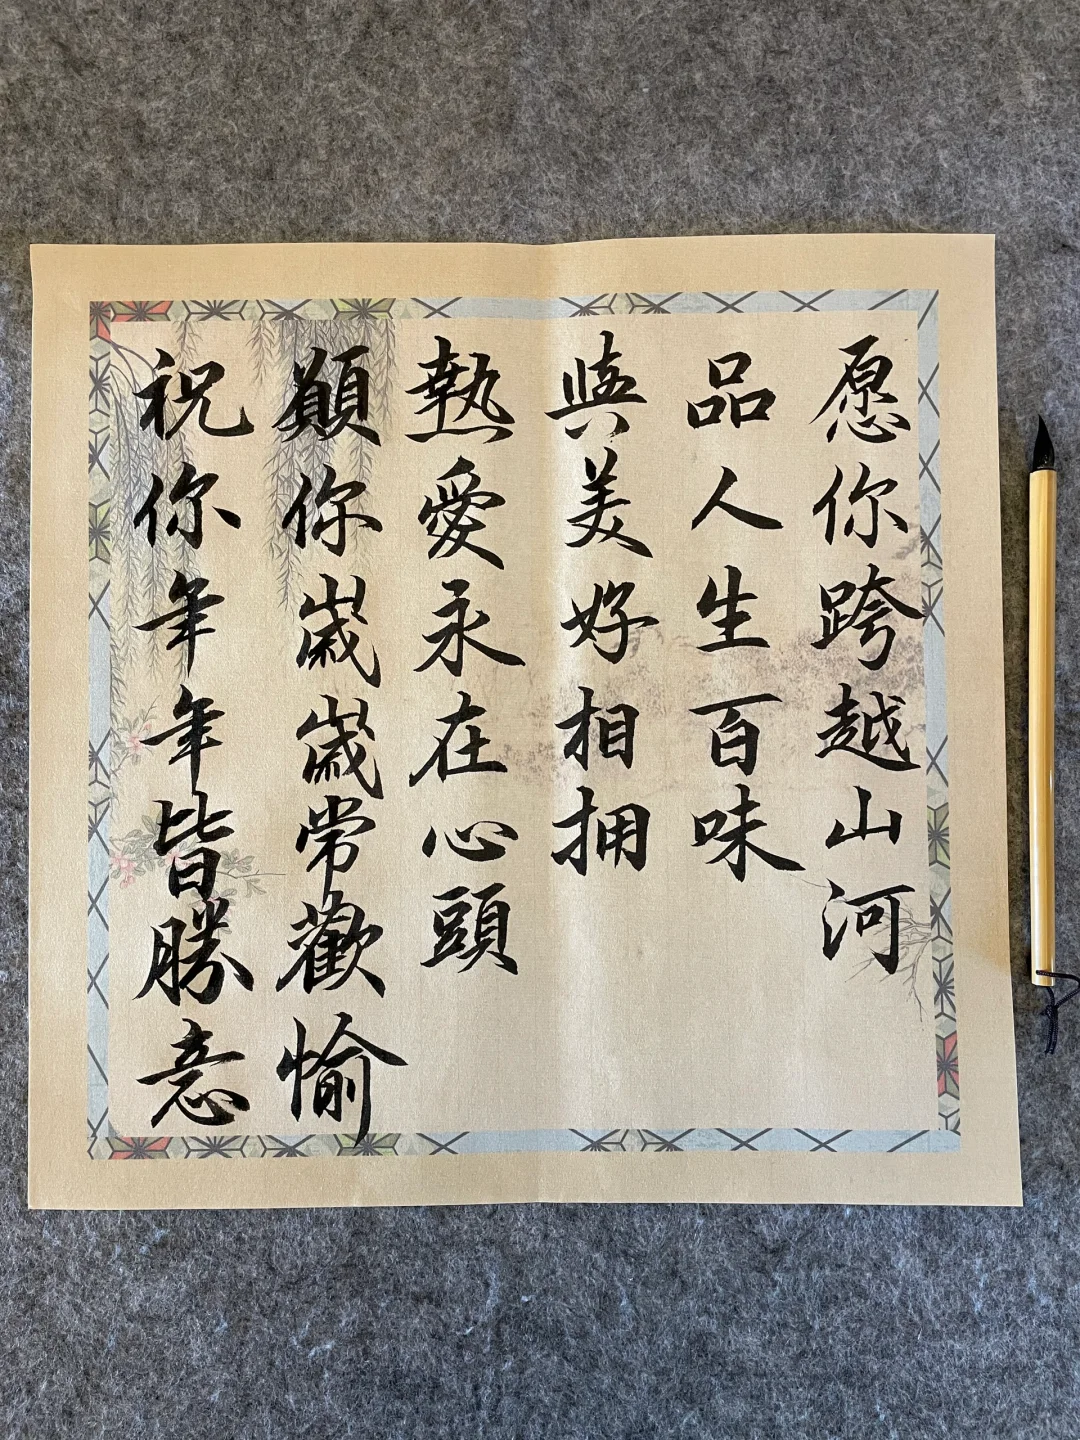 愿你跨越山河
品人生百味
與美好相拥
熱愛永在心頭
願你歲歲常歡愉
祝你年年皆勝意